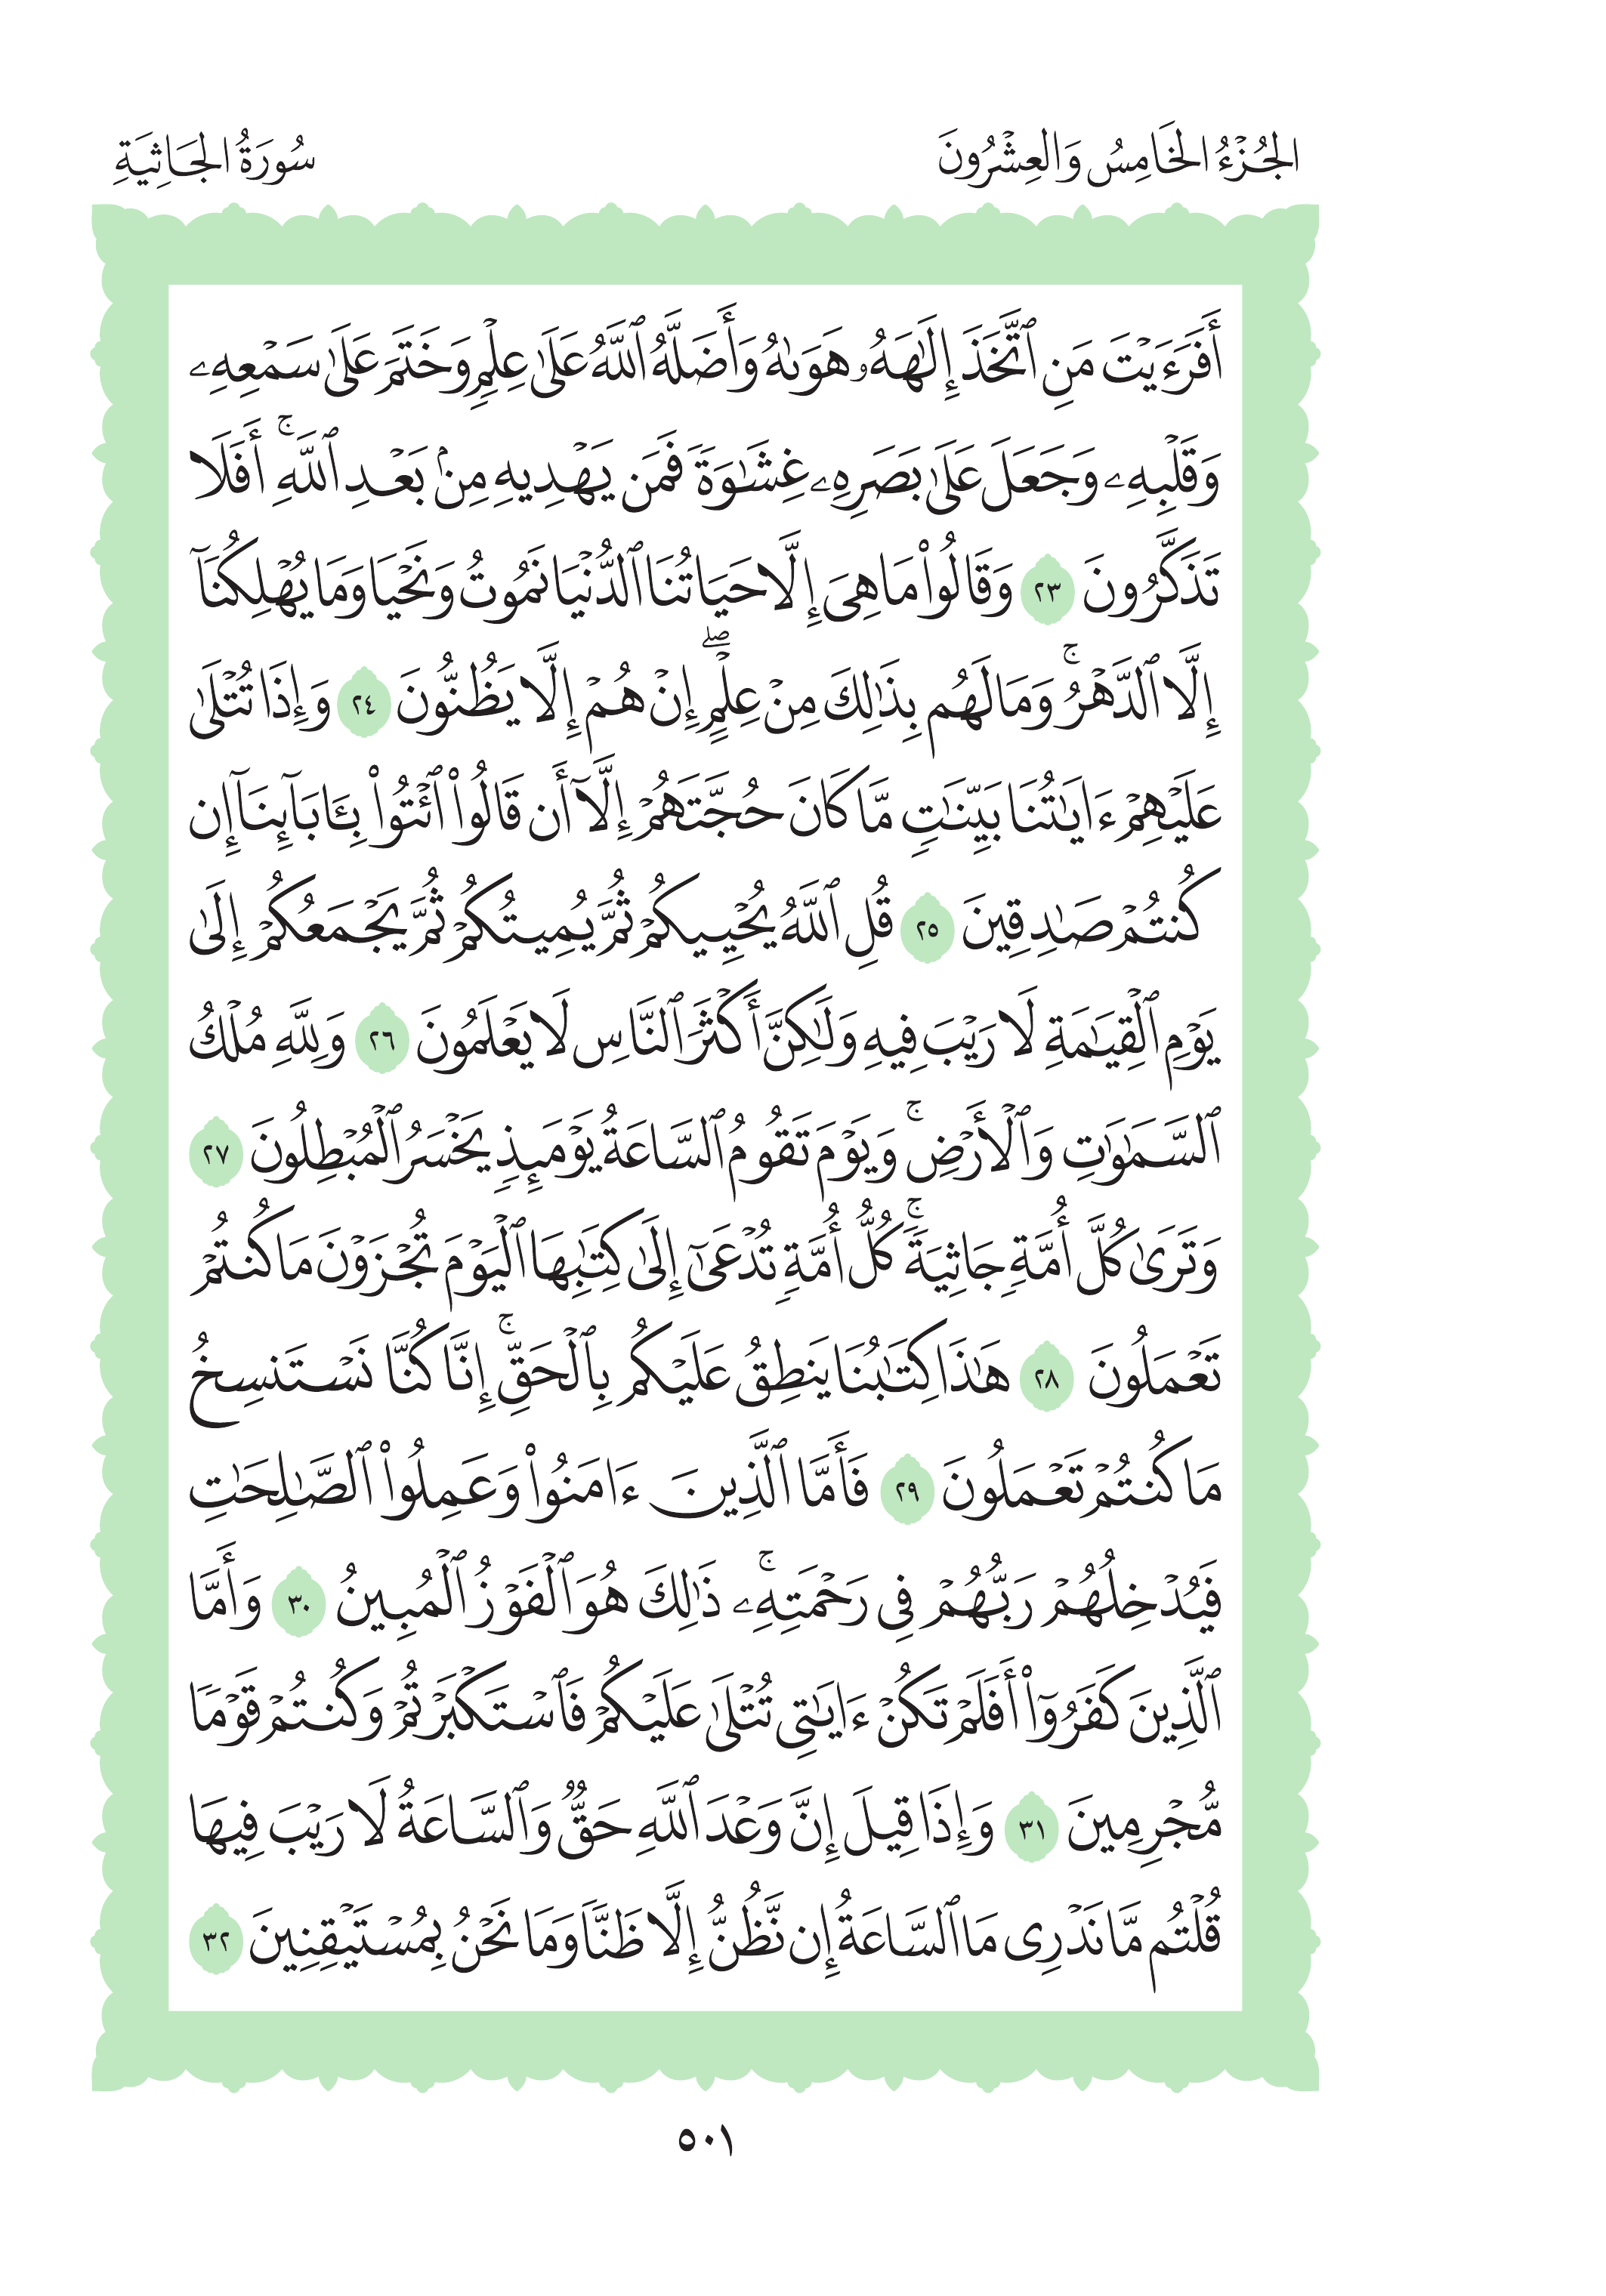 الجُزْءُ الخَامِسُ وَالعِشْرُونَ
سُورَةُ الجَاثِيَةِ
أَفَرَءَيْتَ مَنِ ٱتَّخَذَ إِلَٰهَهُۥ هَوَىٰهُ وَأَضَلَّهُ ٱللَّهُ عَلَىٰ عِلْمٍ وَخَتَمَ عَلَىٰ سَمْعِهِۦ
وَقَلْبِهِۦ وَجَعَلَ عَلَىٰ بَصَرِهِۦ غِشَٰوَةً فَمَن يَهْدِيهِ مِنۢ بَعْدِ ٱللَّهِۚ أَفَلَا
تَذَكَّرُونَ ٢٣ وَقَالُوا۟ مَا هِىَ إِلَّا حَيَاتُنَا ٱلدُّنْيَا نَمُوتُ وَنَحْيَا وَمَا يُهْلِكُنَآ
إِلَّا ٱلدَّهْرُۚ وَمَا لَهُم بِذَٰلِكَ مِنْ عِلْمٍۖ إِنْ هُمْ إِلَّا يَظُنُّونَ ٢٤ وَإِذَا تُتْلَىٰ
عَلَيْهِمْ ءَايَٰتُنَا بَيِّنَٰتٍ مَّا كَانَ حُجَّتَهُمْ إِلَّآ أَن قَالُوا۟ ٱئْتُوا۟ بِـَٔابَآئِنَآ إِن
كُنتُمْ صَٰدِقِينَ ٢٥ قُلِ ٱللَّهُ يُحْيِيكُمْ ثُمَّ يُمِيتُكُمْ ثُمَّ يَجْمَعُكُمْ إِلَىٰ
يَوْمِ ٱلْقِيَٰمَةِ لَا رَيْبَ فِيهِ وَلَٰكِنَّ أَكْثَرَ ٱلنَّاسِ لَا يَعْلَمُونَ ٢٦ وَلِلَّهِ مُلْكُ
ٱلسَّمَٰوَٰتِ وَٱلْأَرْضِۚ وَيَوْمَ تَقُومُ ٱلسَّاعَةُ يَوْمَئِذٍ يَخْسَرُ ٱلْمُبْطِلُونَ ٢٧
وَتَرَىٰ كُلَّ أُمَّةٍ جَاثِيَةًۚ كُلُّ أُمَّةٍ تُدْعَىٰٓ إِلَىٰ كِتَٰبِهَا ٱلْيَوْمَ تُجْزَوْنَ مَا كُنتُمْ
تَعْمَلُونَ ٢٨ هَٰذَا كِتَٰبُنَا يَنطِقُ عَلَيْكُم بِٱلْحَقِّۚ إِنَّا كُنَّا نَسْتَنسِخُ
مَا كُنتُمْ تَعْمَلُونَ ٢٩ فَأَمَّا ٱلَّذِينَ ءَامَنُوا۟ وَعَمِلُوا۟ ٱلصَّٰلِحَٰتِ
فَيُدْخِلُهُمْ رَبُّهُمْ فِى رَحْمَتِهِۦۚ ذَٰلِكَ هُوَ ٱلْفَوْزُ ٱلْمُبِينُ ٣٠ وَأَمَّا
ٱلَّذِينَ كَفَرُوٓا۟ أَفَلَمْ تَكُنْ ءَايَٰتِى تُتْلَىٰ عَلَيْكُمْ فَٱسْتَكْبَرْتُمْ وَكُنتُمْ قَوْمًا
مُّجْرِمِينَ ٣١ وَإِذَا قِيلَ إِنَّ وَعْدَ ٱللَّهِ حَقٌّ وَٱلسَّاعَةُ لَا رَيْبَ فِيهَا
قُلْتُم مَّا نَدْرِى مَا ٱلسَّاعَةُ إِن نَّظُنُّ إِلَّا ظَنًّا وَمَا نَحْنُ بِمُسْتَيْقِنِينَ ٣٢
٥٠١